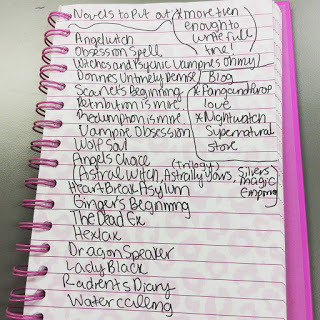 Novels to Put out
*more then
enough to
write full
time!
Angelwitch
Obsession Spell
Witches and Psychic Vampires Ohmy
Donnie's Untimely Demise
Blog
Scarlet's Beginning
*Fang and Purpe
love
Retribution is mine
*Nightwatch
Supernatural
store
Redemption is mine
Vampire Obsession
Wolf Soul
Angels Choice
(Trilogy)
(Astral Witch, Astrally Yours, Silvers
magic
Empiring
HeartBreak Asylum
Ginger's Beginning
The Dead Ex
Hexlax
Dragon Speaker
Lady Black
Radient's Diary
Water